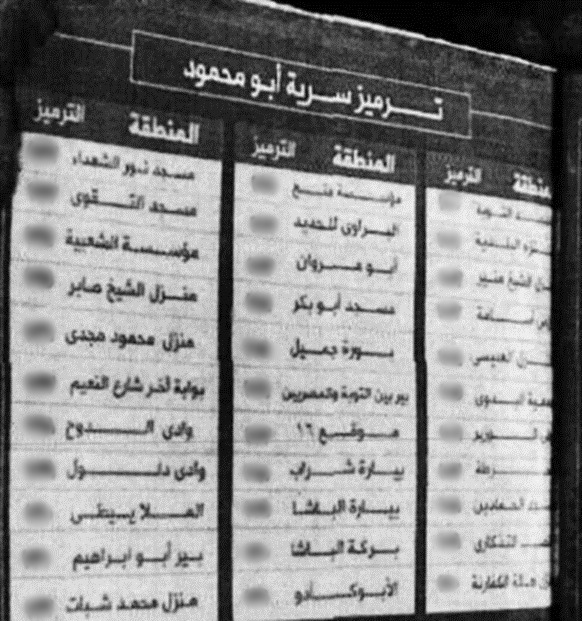 ترميز سرية أبو محمود
المنطقة الترميز
مسجد نور الشهداء
مسجد التقوى
مؤسسة الشعبية
منزل الشيخ صابر
منزل محمود مجدي
بوابة آخر شارع النعيم
وادي الدوح
وادي دلول
بير أبو ابراهيم
منزل محمد شبات
المنطقة الترميز
مؤسسة منع
البراوي للحديد
أبو مروان
مسجد أبو بكر
بورة جميل
بير بين التوبة والمصريين
موقع ١٦
بيارة شراب
بيارة الباشا
بركة الباشا
الأبوكادو
المنطقة الترميز
التوبة
البلدية
الشيخ منير
أسامة
العيسى
البدوي
الحمادين
التنكاري
الكفارنة